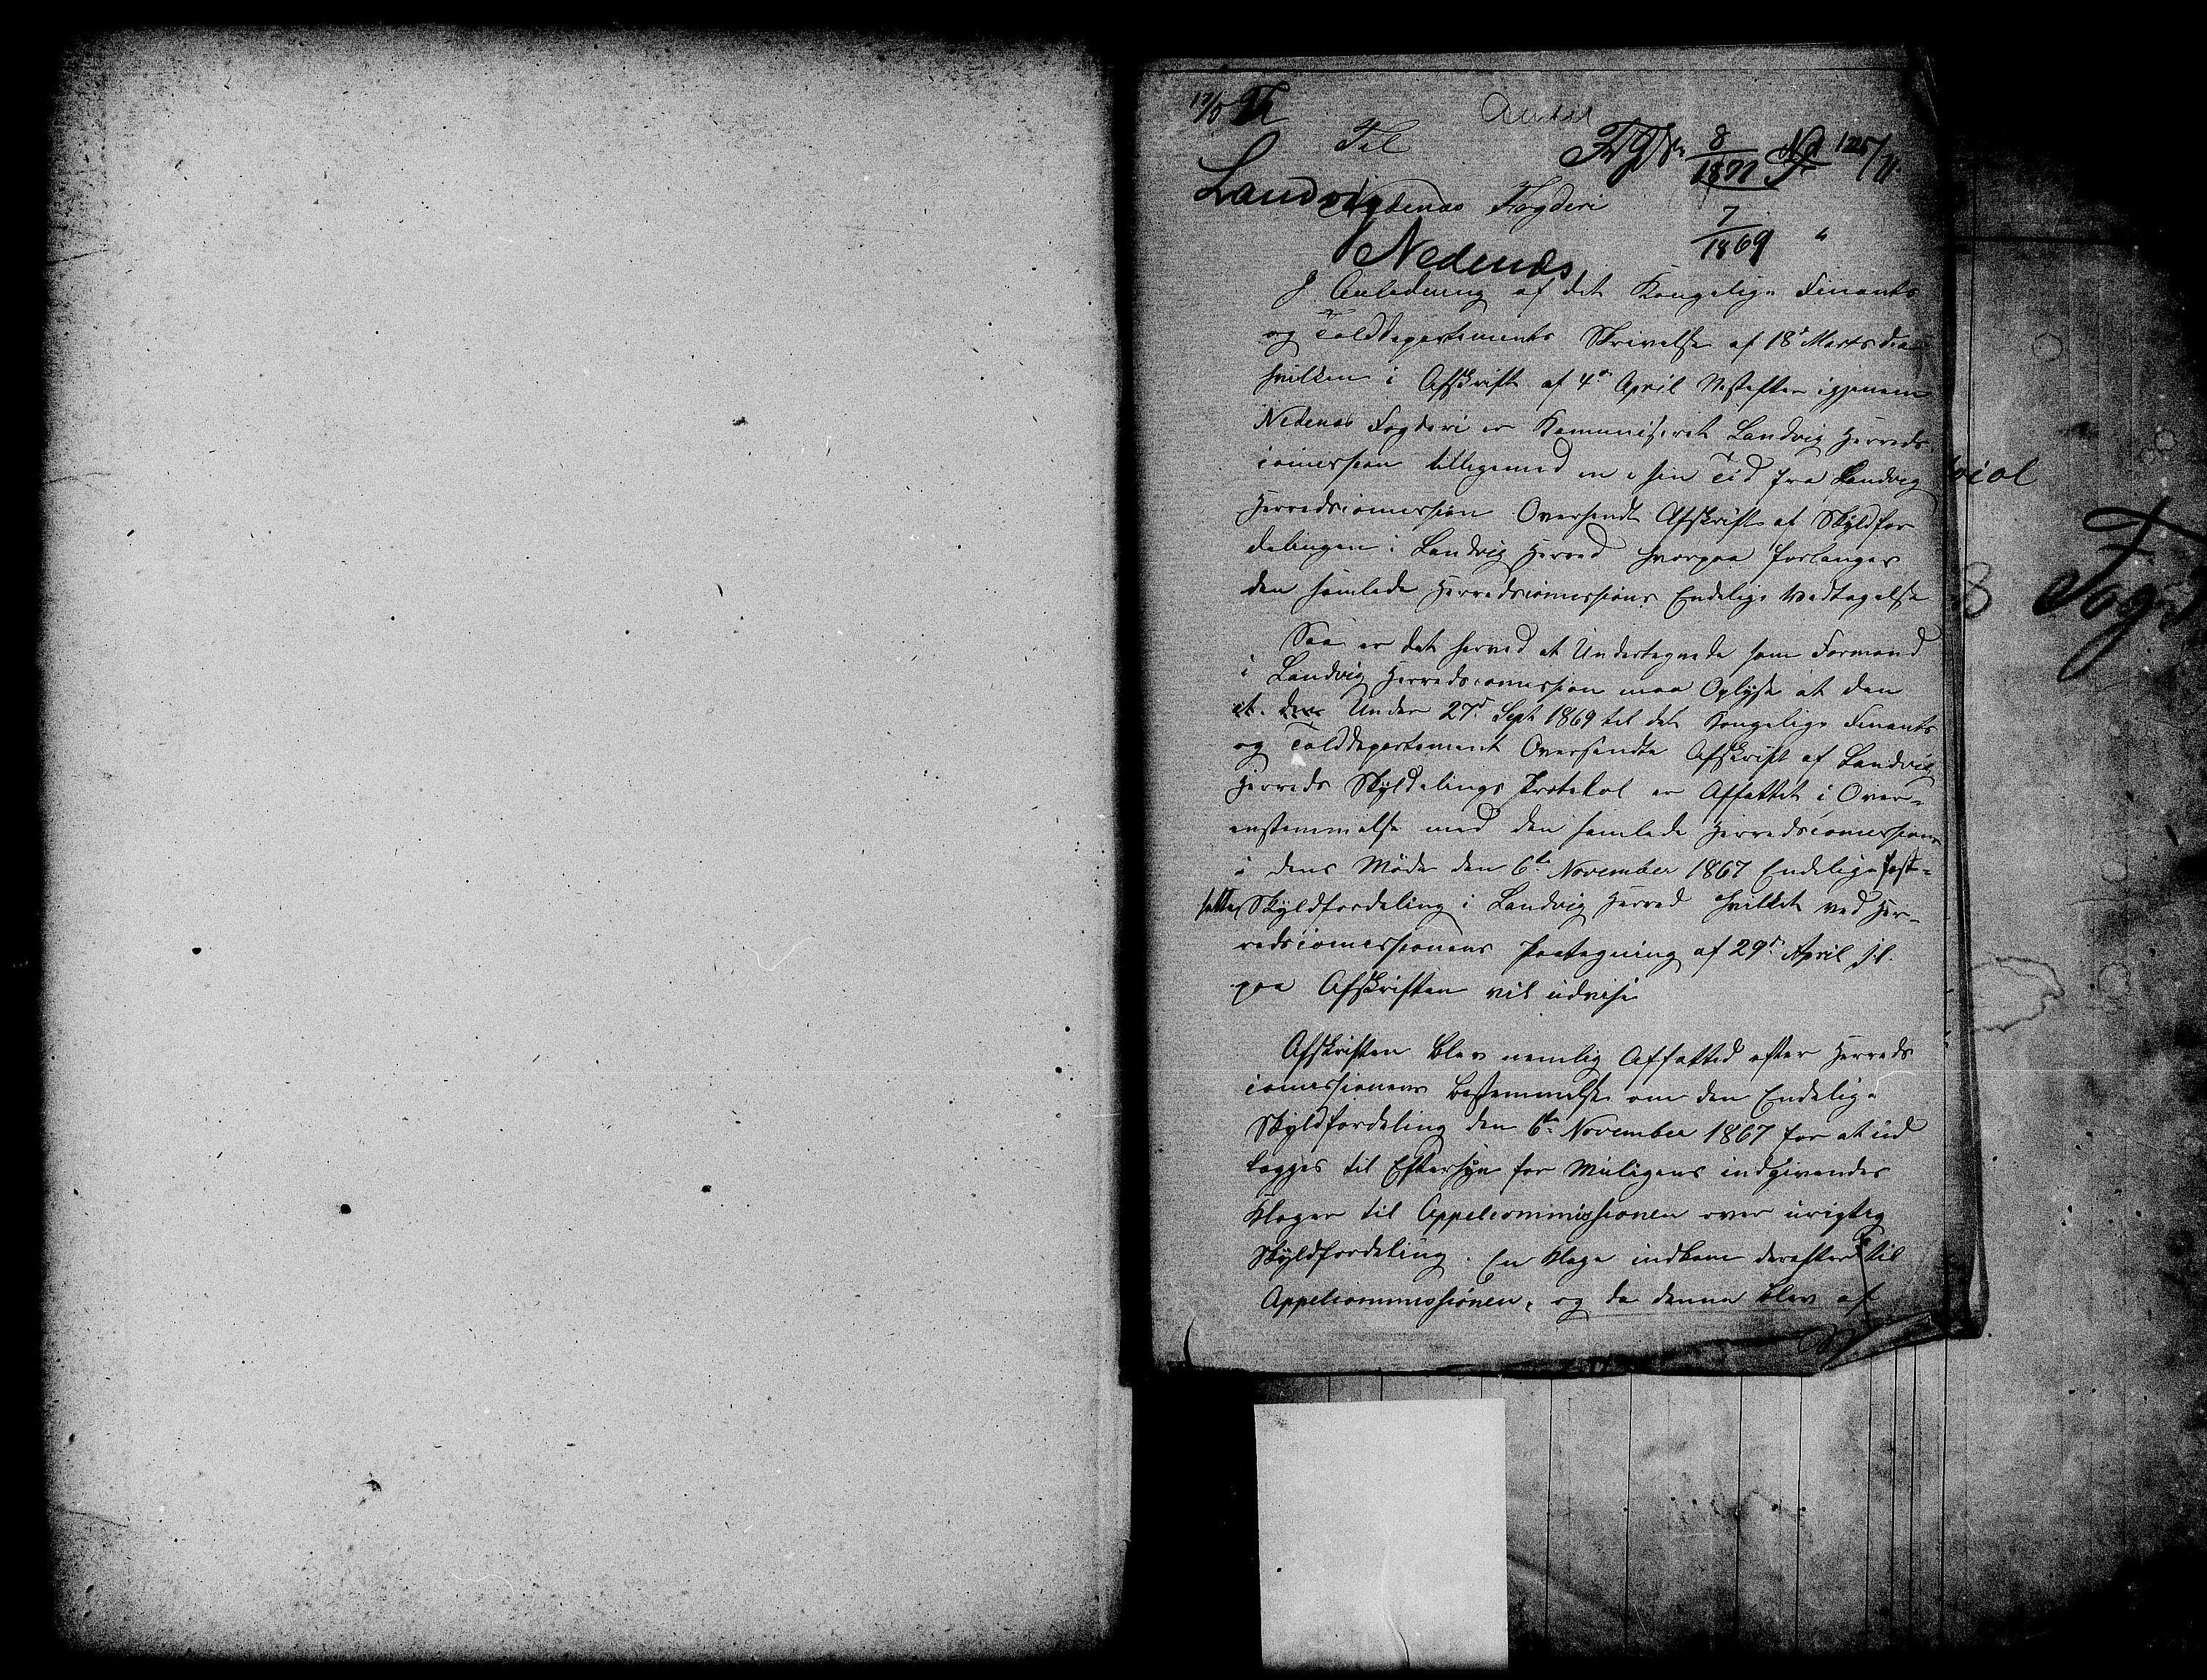 Til
Landvig
Nedenæs Fogderi
Nedenæs
8/1871 No 1225/71.
7/1869 "
I Anledning af det Kongelige Finants
og Tolddepartements Skrivelse af 18d Marts d.a.
hvilken i Afskrift af 4de April næstefter igjennem
Nedenæs Fogderi er Kommuniseret Landvig Herreds
comission tilligemed en i sin Tid fra Landvig
Herredscomission Oversendt Afskrift af Skyldfor
delingen i Landvig Herred hvorpaa forlanges
den samlede Herredscomissions Endelige Vedtagelse
Saa er det herved at Undertegnede som Formand
i Landvig Herredscomission maa Oplyse at den
Under 27d Sept 1869 til det Kongelige Finants
og Tolddepartement Oversendte Afskrift af Landvig
Herreds Skyldelings Protokol er Affattet i Over-
enstemmelse med den samlede Herredscomissions
i dens Møde den 6te November 1867 Endelige fast-
satte Skyldfordeling i Landvig Herred hvilket ved Her-
redscomissionens Paategning af 29d April
paa Afskriften vil udvise
Afskriften blev nemlig Affatted efter Herreds
comissionens bestemmelse om den Endelige
Skyldfordeling den 6te November 1867 for at ud
lægges til Eftersyn for Muligens indgivendes
Klager til Appelcommissionen over urigtig
Skyldfordeling. En Klage indkom derefter til
Appelcommissionen, og da denne blev af
Fogd